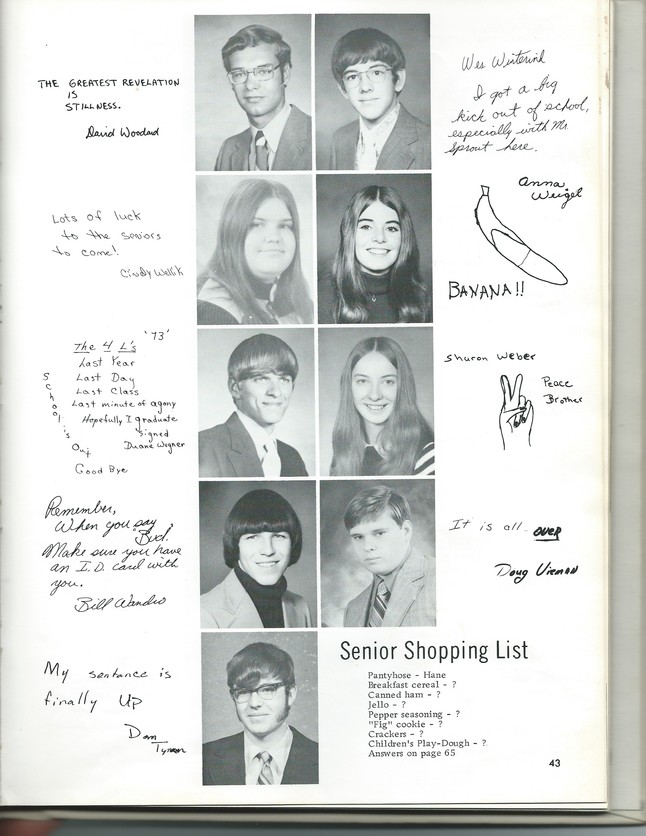 THE GREATEST REVELATION
IS
STILLNESS.
David Woodard
Wes Winterink
I got a big
kick out of school,
especially with Mr.
Sprout here.
Lots of luck
to the seniors
to come!
Cindy Wellik
Anna
Weigel
BANANA!!
'73'
The 4 L's
Last Year
Last Day
Last Class
Last minute of agony
Hopefully I graduate
signed
Duane Wegner
School's
Out
Good Bye
Sharon Weber
Peace
Brother
Remember,
When you say
"Bud".
Make sure you have
an I.D. card with
you.
Bill Wandro
It is all OVER
Doug
My sentance is
finally Up
Dan
Tyman
Senior Shopping List
Pantyhose - Hane
Breakfast cereal - ?
Canned ham - ?
Jello - ?
Pepper seasoning - ?
"Fig" cookie - ?
Crackers - ?
Children's Play-Dough - ?
Answers on page 65
43